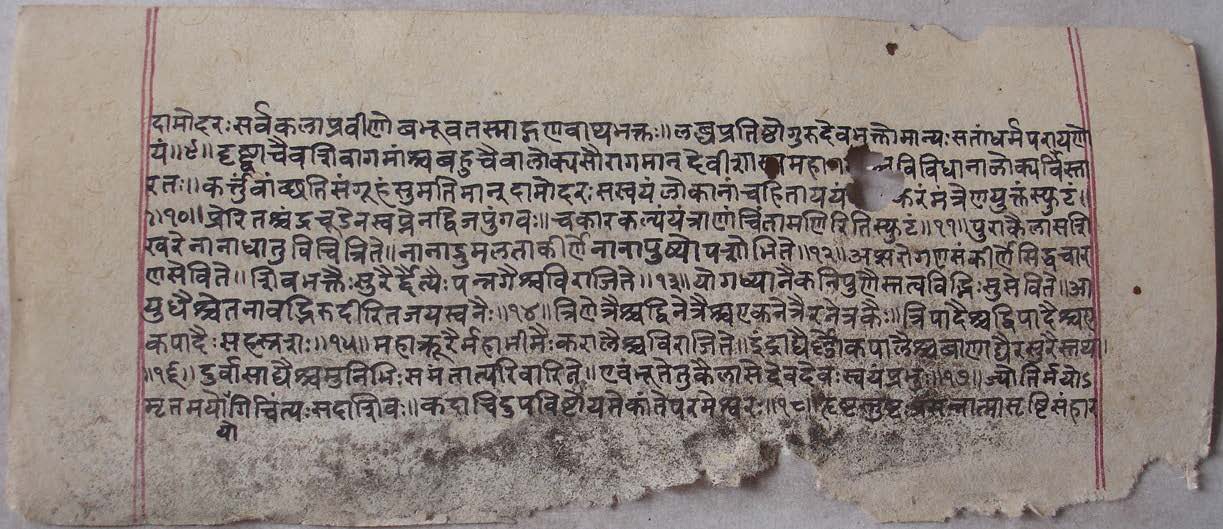 दामोदरः सर्वकलाप्रवीणो बभूव तस्माद्गणवाथभक्तः॥ लब्धप्रतिष्ठो गुरुदेवभक्तो मान्यः सतां धर्मपरायणो
यं॥९॥ दृष्ट्वा चैव शिवागमांश्च बहुचैवालोक्य सौरागमान् देवी विविधानालोक्य विस्ता
रतः॥ कर्त्तुं वांछति संग्रहं सुमतिमान् दामोदरः स स्वयं लोकानां च हिताय यं करं मंत्रेण युक्तं स्फुटं।
॥१०॥ प्रेरितश्चंद्रचूडेन स्वप्नेन द्विजपुंगवः॥ चकार कल्पयंत्राणां चिंतामणिरिति स्फुटं॥११॥ पुरा कैलासशि
खरे नानाधातुविचित्रिते॥ नानाद्रुमलताकीर्णे नानापुष्पोपशोभिते॥१२॥ अप्सरोगणसंकीर्णे सिद्धचार
णसेविते॥ शिवभक्तैः सुरैर्दैत्यैः पन्नगैश्च विराजिते॥१३॥ योगध्यानैकनिपुणैस्तत्वविद्भिः सुसेविते॥ आ
युधैश्चेतनावद्भिरुदीरितजयस्वनैः॥१४॥ त्रिणेत्रैश्च द्विनेत्रैश्च एकनेत्रैरनेत्रकैः॥ त्रिपादैश्च द्विपादैश्च ए
कपादैः सहस्त्रशः॥१५॥ महाक्रूरैर्महाभीमैः करालैश्च विराजिते॥ इंद्राद्यैर्लोकपालैश्च बाणाद्यैरसुरैस्तथा।
॥१६॥ दुर्वासाद्यैश्च मुनिभिः समंतात्परिवारिते॥ एवंभूते तु कैलासे देवदेवः स्वयं प्रभुः॥१७॥ ज्योतिर्मयोऽ
मृतमयो गिचिंत्यः सदाशिवः॥ कदाचिदुपविष्टो यतेकांते परमेश्वरः॥१८॥ हृष्टस्तुष्टः प्रसन्नात्मा सृष्टिसंहार
यो